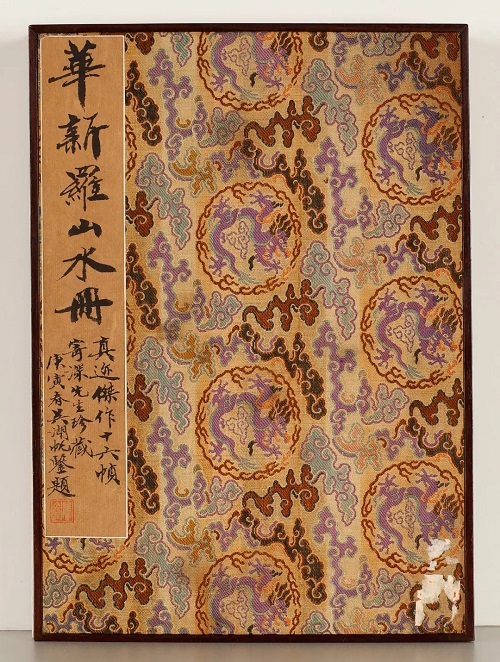 華新羅山水冊
真迹傑作十六幀
寄深先生珍藏
庚寅春吳湖帆鑒題